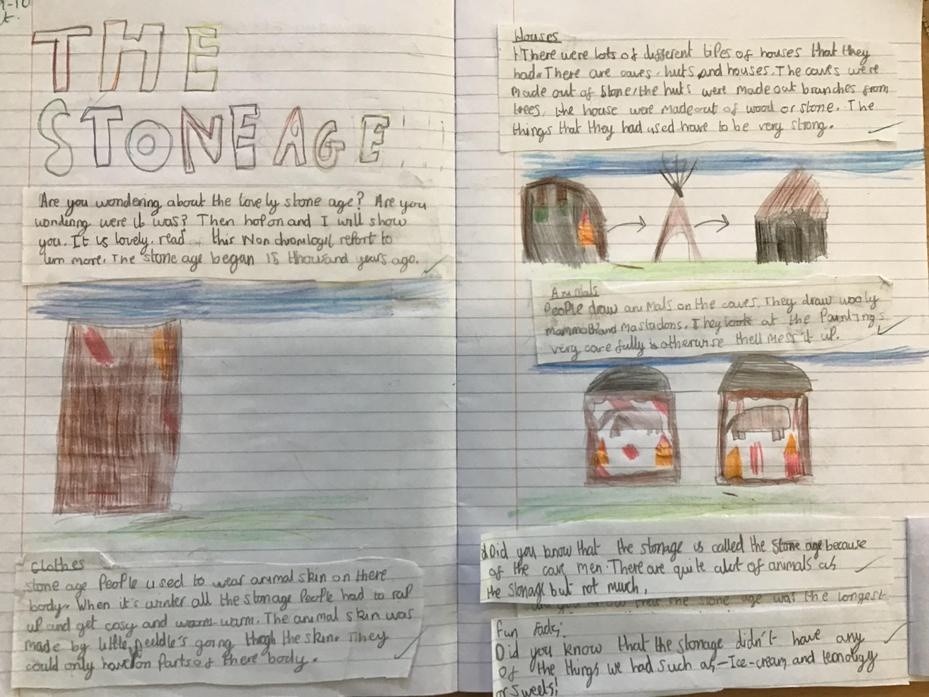 THE
STONE AGE
Are you wondering about the lovely stone age? Are you
wondering were it was? Then hop on and I will show
you. It is lovely, read this Non chronlogil report to
lern more. The stone age began 15 thousand years ago.
Clothes
Stone age People used to wear animal skin on there
body. When it's winter all the stonage People had to
up and get cosy and warm. The animal skin was
made by little going the skin. They
could only have on Parts of there body.
Houses
There were lots of different tipes of houses that they
had. There are caves, huts, and houses. The caves were
made out of stone, the huts were made out branches from
trees, the house were made out of wood or stone. The
things that they had used have to be very strong.
Animals
People draw animals on the caves. They draw wooly
mammoth and mastadons. They look at the Painting's
very care fully is otherwise thell mess it up.
Did you know that the stonage is called the Stone age because
of the cave men. There are quite alot of animals as
the stonage but not much,
know that the stone age was the longest
Fun Facts:
Did you know that the stonage didn't have any
of the things we had such as,-Ice-cream, and
or Sweets!